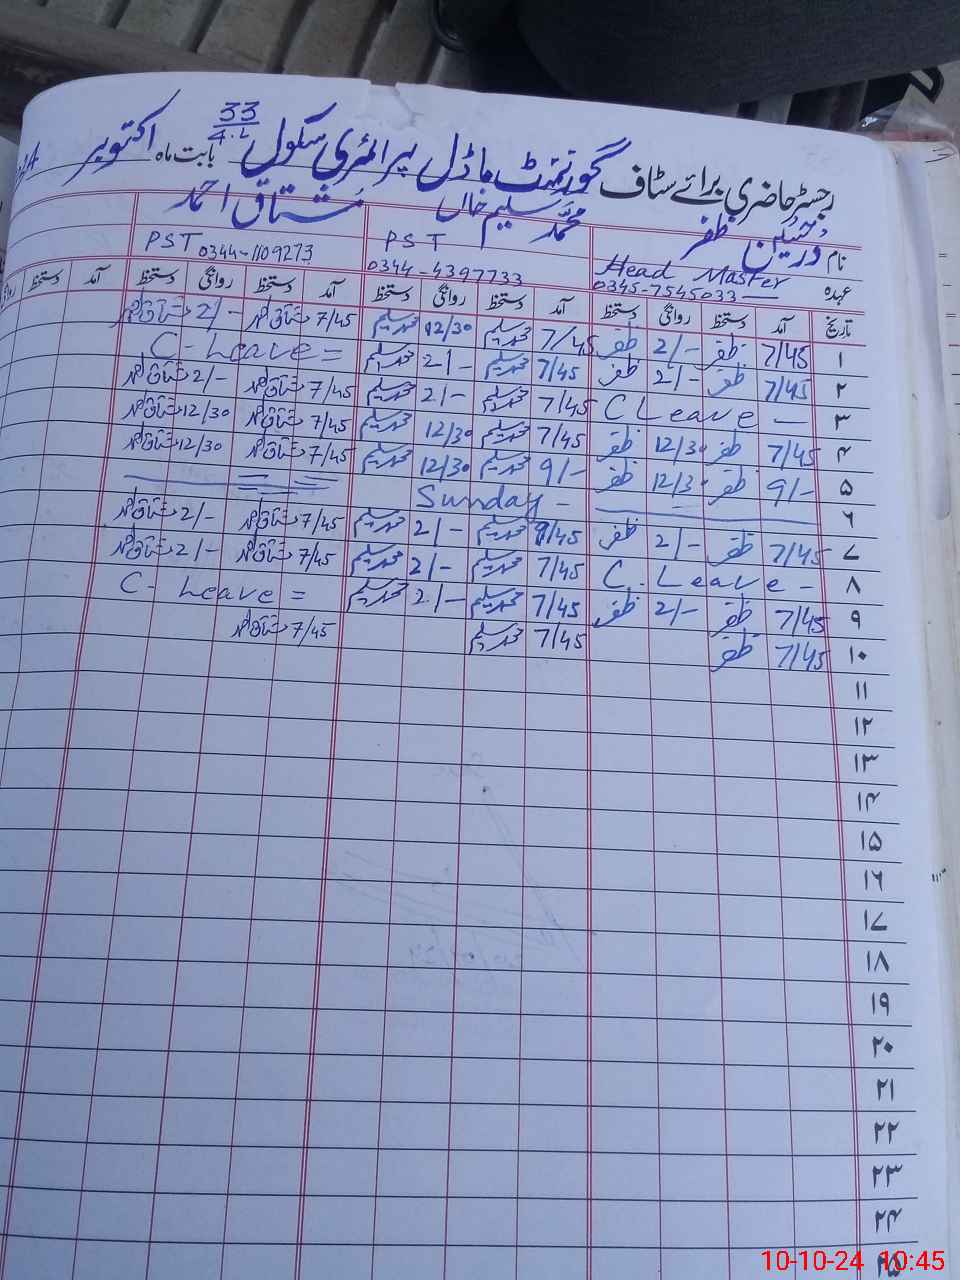 رجسٹر حاضری برائے سٹاف گورنمنٹ ماڈل پرائمری سکول 33/4.L بابت ماہ اکتوبر
نام ظفر محمد سلیم خاں مشتاق احمد
عہدہ Head Master PST PST
0345-7545033 0344-4397733 0344-1109273
تاریخ آمد دستخط روانگی دستخط آمد دستخط روانگی دستخط آمد دستخط روانگی دستخط آمد دستخط
۱ 7/45 ظفر 2/- ظفر 7/45 محمد سلیم 12/30 محمد سلیم 7/45 مشتاق احمد 2/- مشتاق احمد
۲ 7/45 ظفر 2/- ظفر 7/45 محمد سلیم 2/- محمد سلیم C-Leave =
۳ C Leave — 7/45 محمد سلیم 2/- محمد سلیم 7/45 مشتاق احمد 2/- مشتاق احمد
۴ 7/45 ظفر 12/30 ظفر 7/45 محمد سلیم 12/30 محمد سلیم 7/45 مشتاق احمد 12/30 مشتاق احمد
۵ 9/- ظفر 12/30 ظفر 9/- محمد سلیم 12/30 محمد سلیم 7/45 مشتاق احمد 12/30 مشتاق احمد
۶ Sunday -
۷ 7/45 ظفر 2/- ظفر 7/45 محمد سلیم 2/- محمد سلیم 7/45 مشتاق احمد 2/- مشتاق احمد
۸ C. Leave - 7/45 محمد سلیم 2/- محمد سلیم 7/45 مشتاق احمد 2/- مشتاق احمد
۹ 7/45 ظفر 2/- ظفر 7/45 محمد سلیم 2/- محمد سلیم C- Leave =
۱۰ 7/45 ظفر 7/45 محمد سلیم 7/45 مشتاق احمد
۱۱
۱۲
۱۳
۱۴
۱۵
۱۶
۱۷
۱۸
۱۹
۲۰
۲۱
۲۲
۲۳
۲۴
۲۵
10-10-24 10:45